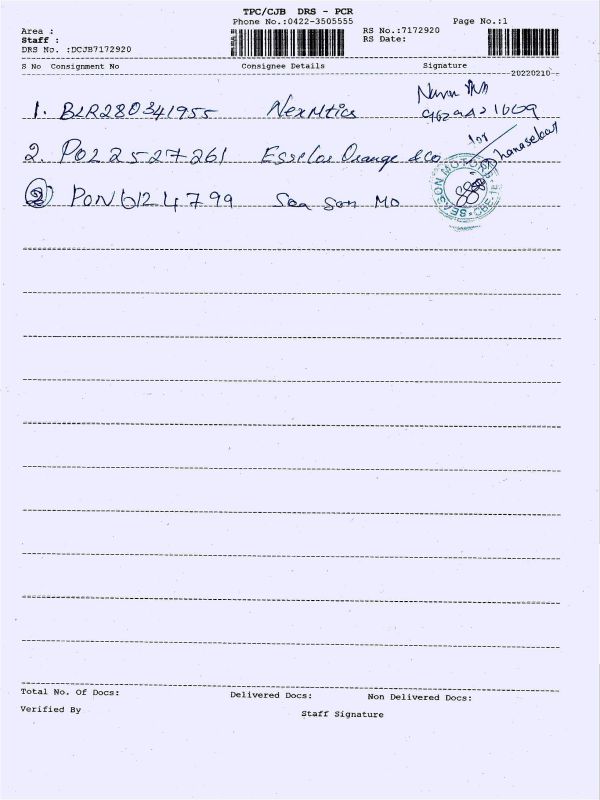 TPC/CJB DRS - PCR
Phone No.:0422-3505555
Page No.:1
Area :
Staff :
DRS No. :DCJB7172920
RS No.:7172920
RS Date:
S No Consignment No Consignee Details Signature
20220210
1. BLR280341955 Nexmtics
2. POL2527261 Esselar Orange &co
for
3 PON6124799 Sea Son Mo
SEASON MOTORS
Total No. Of Docs: Delivered Docs: Non Delivered Docs:
Verified By Staff Signature